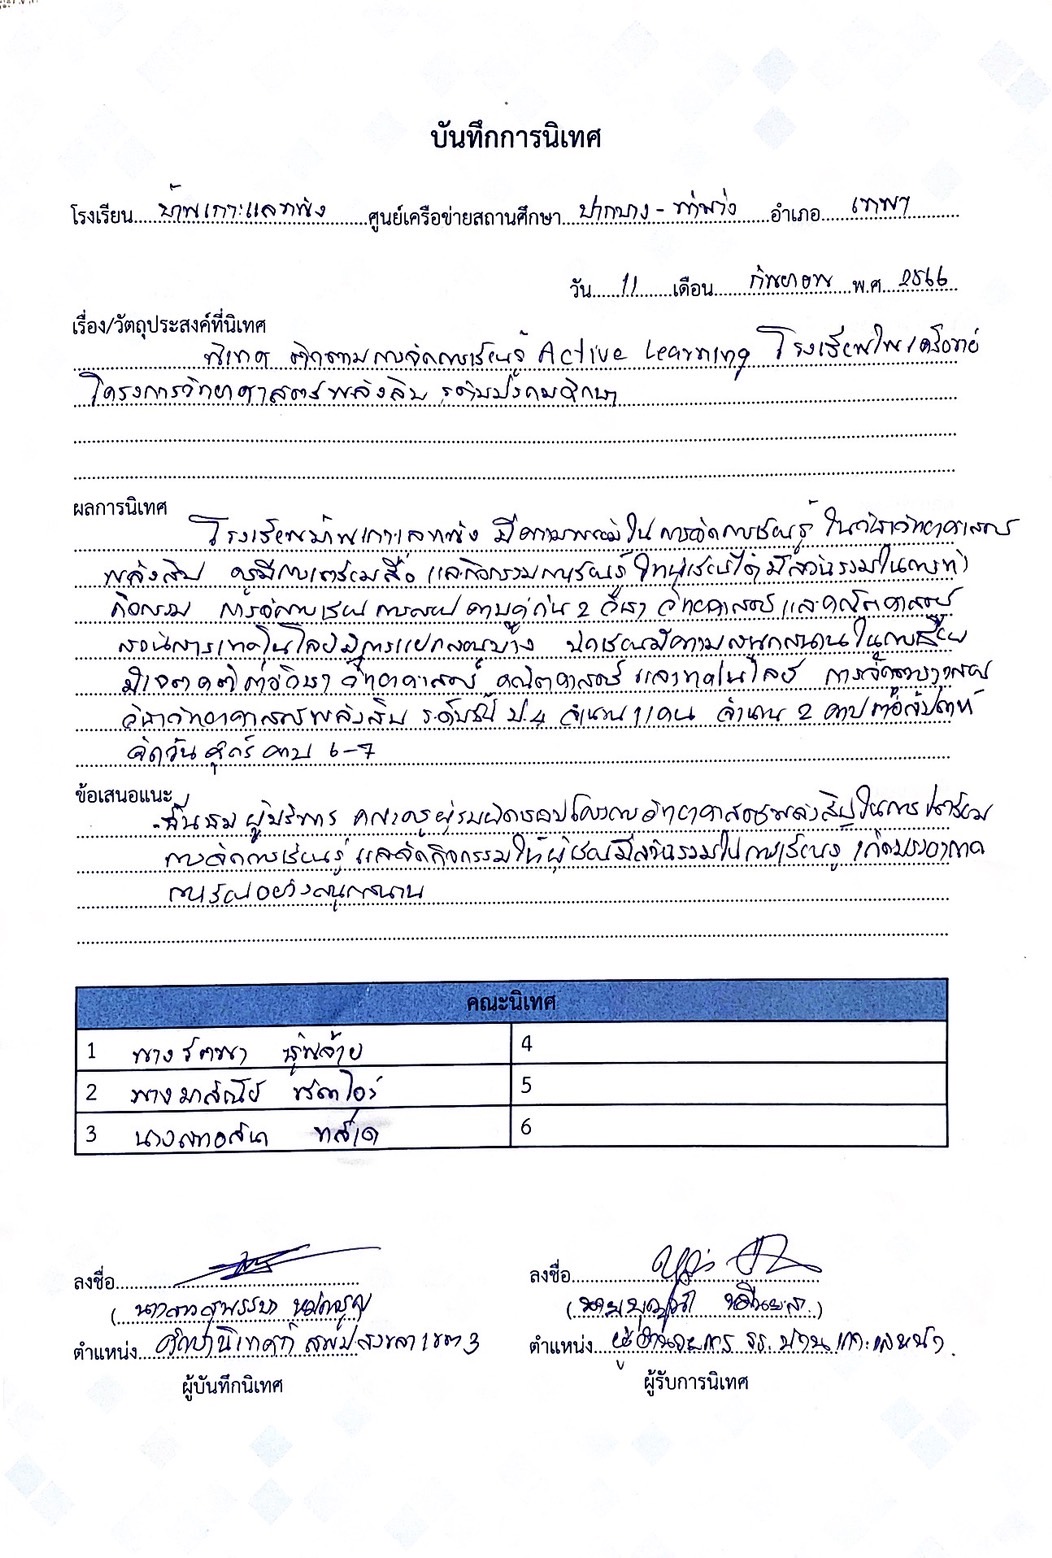 บันทึกการนิเทศ
โรงเรียน บ้านเกาะแลหนัง ศูนย์เครือข่ายสถานศึกษา ปากบาง - ท่าม่วง อำเภอ เทพา
วัน 11 เดือน กันยายน พ.ศ. 2566
เรื่อง/วัตถุประสงค์ที่นิเทศ
นิเทศ ติดตามการจัดการเรียนรู้ Active Learning โรงเรียนในเครือข่าย
โครงการวิทยาศาสตร์พลังสิบ ระดับประถมศึกษา
ผลการนิเทศ
โรงเรียนบ้านเกาะแลหนัง มีความพร้อมในการจัดการเรียนรู้ ในวิชาวิทยาศาสตร์
พลังสิบ ครูมีการเตรียมสื่อ และกิจกรรมการเรียนรู้ ให้ผู้เรียนได้มีส่วนร่วมในการทำ
กิจกรรม การจัดการเรียนการสอน ควบคู่กัน 2 วิชา วิทยาศาสตร์ และคณิตศาสตร์
ส่วนสาระเทคโนโลยีมีการแยกสอนบ้าง นักเรียนมีความสนุกสนานในการเรียน
มีเจตคติต่อวิชา วิทยาศาสตร์ คณิตศาสตร์ และเทคโนโลยี การจัดตารางสอน
วิชาวิทยาศาสตร์พลังสิบ ระดับชั้น ป.4 จำนวน 11 คน จำนวน 2 คาบต่อสัปดาห์
คือวัน ศุกร์ คาบ 6-7
ข้อเสนอแนะ
- ชื่นชม ผู้บริหาร คณะครูผู้รับผิดชอบโครงการวิทยาศาสตร์พลังสิบในการเตรียม
การจัดการเรียนรู้ และจัดกิจกรรมให้ผู้เรียนมีส่วนร่วมในการเรียนรู้ เกิดบรรยากาศ
การเรียนอย่างสนุกสนาน
คณะนิเทศ
1 นางรัตนา
4
2 นาง
5
3 นาง
6
ลงชื่อ
ลงชื่อ
(นางสาวสุพรรษา
(นาย
ตำแหน่ง ศึกษานิเทศก์ สพป.สงขลา เขต 3
ตำแหน่ง ผู้อำนวยการ รร. บ้านเกาะแลหนัง
ผู้บันทึกนิเทศ
ผู้รับการนิเทศ